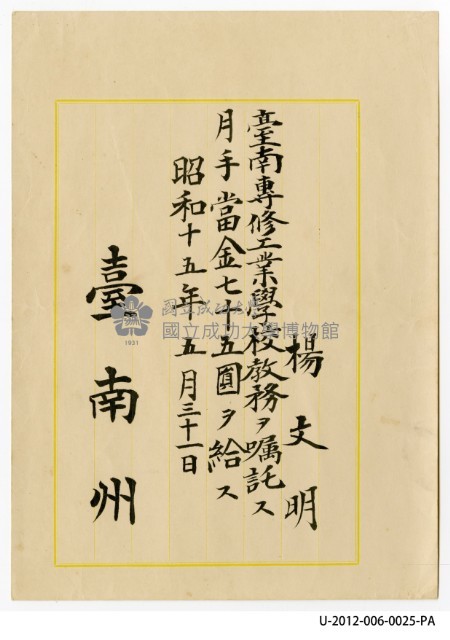 楊文明
臺南專修工業學校教務ヲ嘱託ス
月手當金七十五圓ヲ給ス
昭和十五年五月三十一日
臺南州
國立成功大學
國立成功大學博物館
1931
U-2012-006-0025-PA